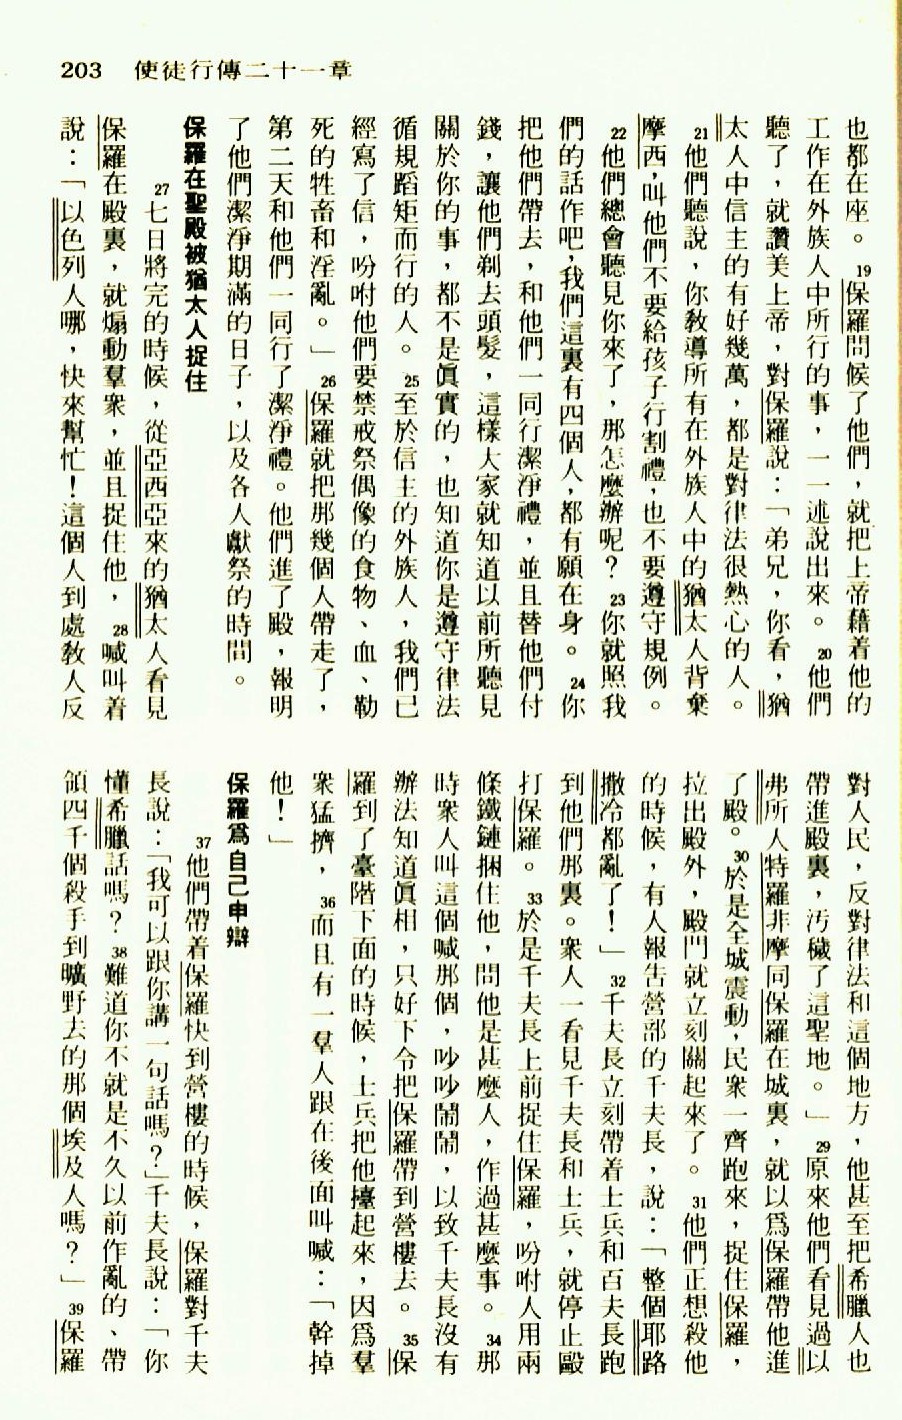 203　使徒行傳二十一章
也都在座。19保羅問候了他們，就把上帝藉着他的
工作在外族人中所行的事，一一述說出來。20他們
聽了，就讚美上帝，對保羅說：「弟兄，你看，猶
太人中信主的有好幾萬，都是對律法很熱心的人。
21他們聽說，你教導所有在外族人中的猶太人背棄
摩西，叫他們不要給孩子行割禮，也不要遵守規例。
22他們總會聽見你來了，那怎麼辦呢？23你就照我
們的話作吧，我們這裏有四個人，都有願在身。24你
把他們帶去，和他們一同行潔淨禮，並且替他們付
錢，讓他們剃去頭髮，這樣大家就知道以前所聽見
關於你的事，都不是眞實的，也知道你是遵守律法
循規蹈矩而行的人。25至於信主的外族人，我們已
經寫了信，吩咐他們要禁戒祭偶像的食物、血、勒
死的牲畜和淫亂。」26保羅就把那幾個人帶走了，
第二天和他們一同行了潔淨禮。他們進了殿，報明
了他們潔淨期滿的日子，以及各人獻祭的時間。
保羅在聖殿被猶太人捉住
27七日將完的時候，從亞西亞來的猶太人看見
保羅在殿裏，就煽動羣衆，並且捉住他，28喊叫着
說：「以色列人哪，快來幫忙！這個人到處教人反
對人民，反對律法和這個地方，他甚至把希臘人也
帶進殿裏，汚穢了這聖地。」29原來他們看見過以
弗所人特羅非摩同保羅在城裏，就以爲保羅帶他進
了殿。30於是全城震動，民衆一齊跑來，捉住保羅，
拉出殿外，殿門就立刻關起來了。31他們正想殺他
的時候，有人報吿營部的千夫長，說：「整個耶路
撒冷都亂了！」32千夫長立刻帶着士兵和百夫長跑
到他們那裏。衆人一看見千夫長和士兵，就停止毆
打保羅。33於是千夫長上前捉住保羅，吩咐人用兩
條鐵鏈捆住他，問他是甚麼人，作過甚麼事。34那
時衆人叫這個喊那個，吵吵鬧鬧，以致千夫長沒有
辦法知道眞相，只好下令把保羅帶到營樓去。35保
羅到了臺階下面的時候，士兵把他擡起來，因爲羣
衆猛擠，36而且有一羣人跟在後面叫喊：「幹掉
他！」
保羅爲自己申辯
37他們帶着保羅快到營樓的時候，保羅對千夫
長說：「我可以跟你講一句話嗎？」千夫長說：「你
懂希臘話嗎？38難道你不就是不久以前作亂的、帶
領四千個殺手到曠野去的那個埃及人嗎？」39保羅